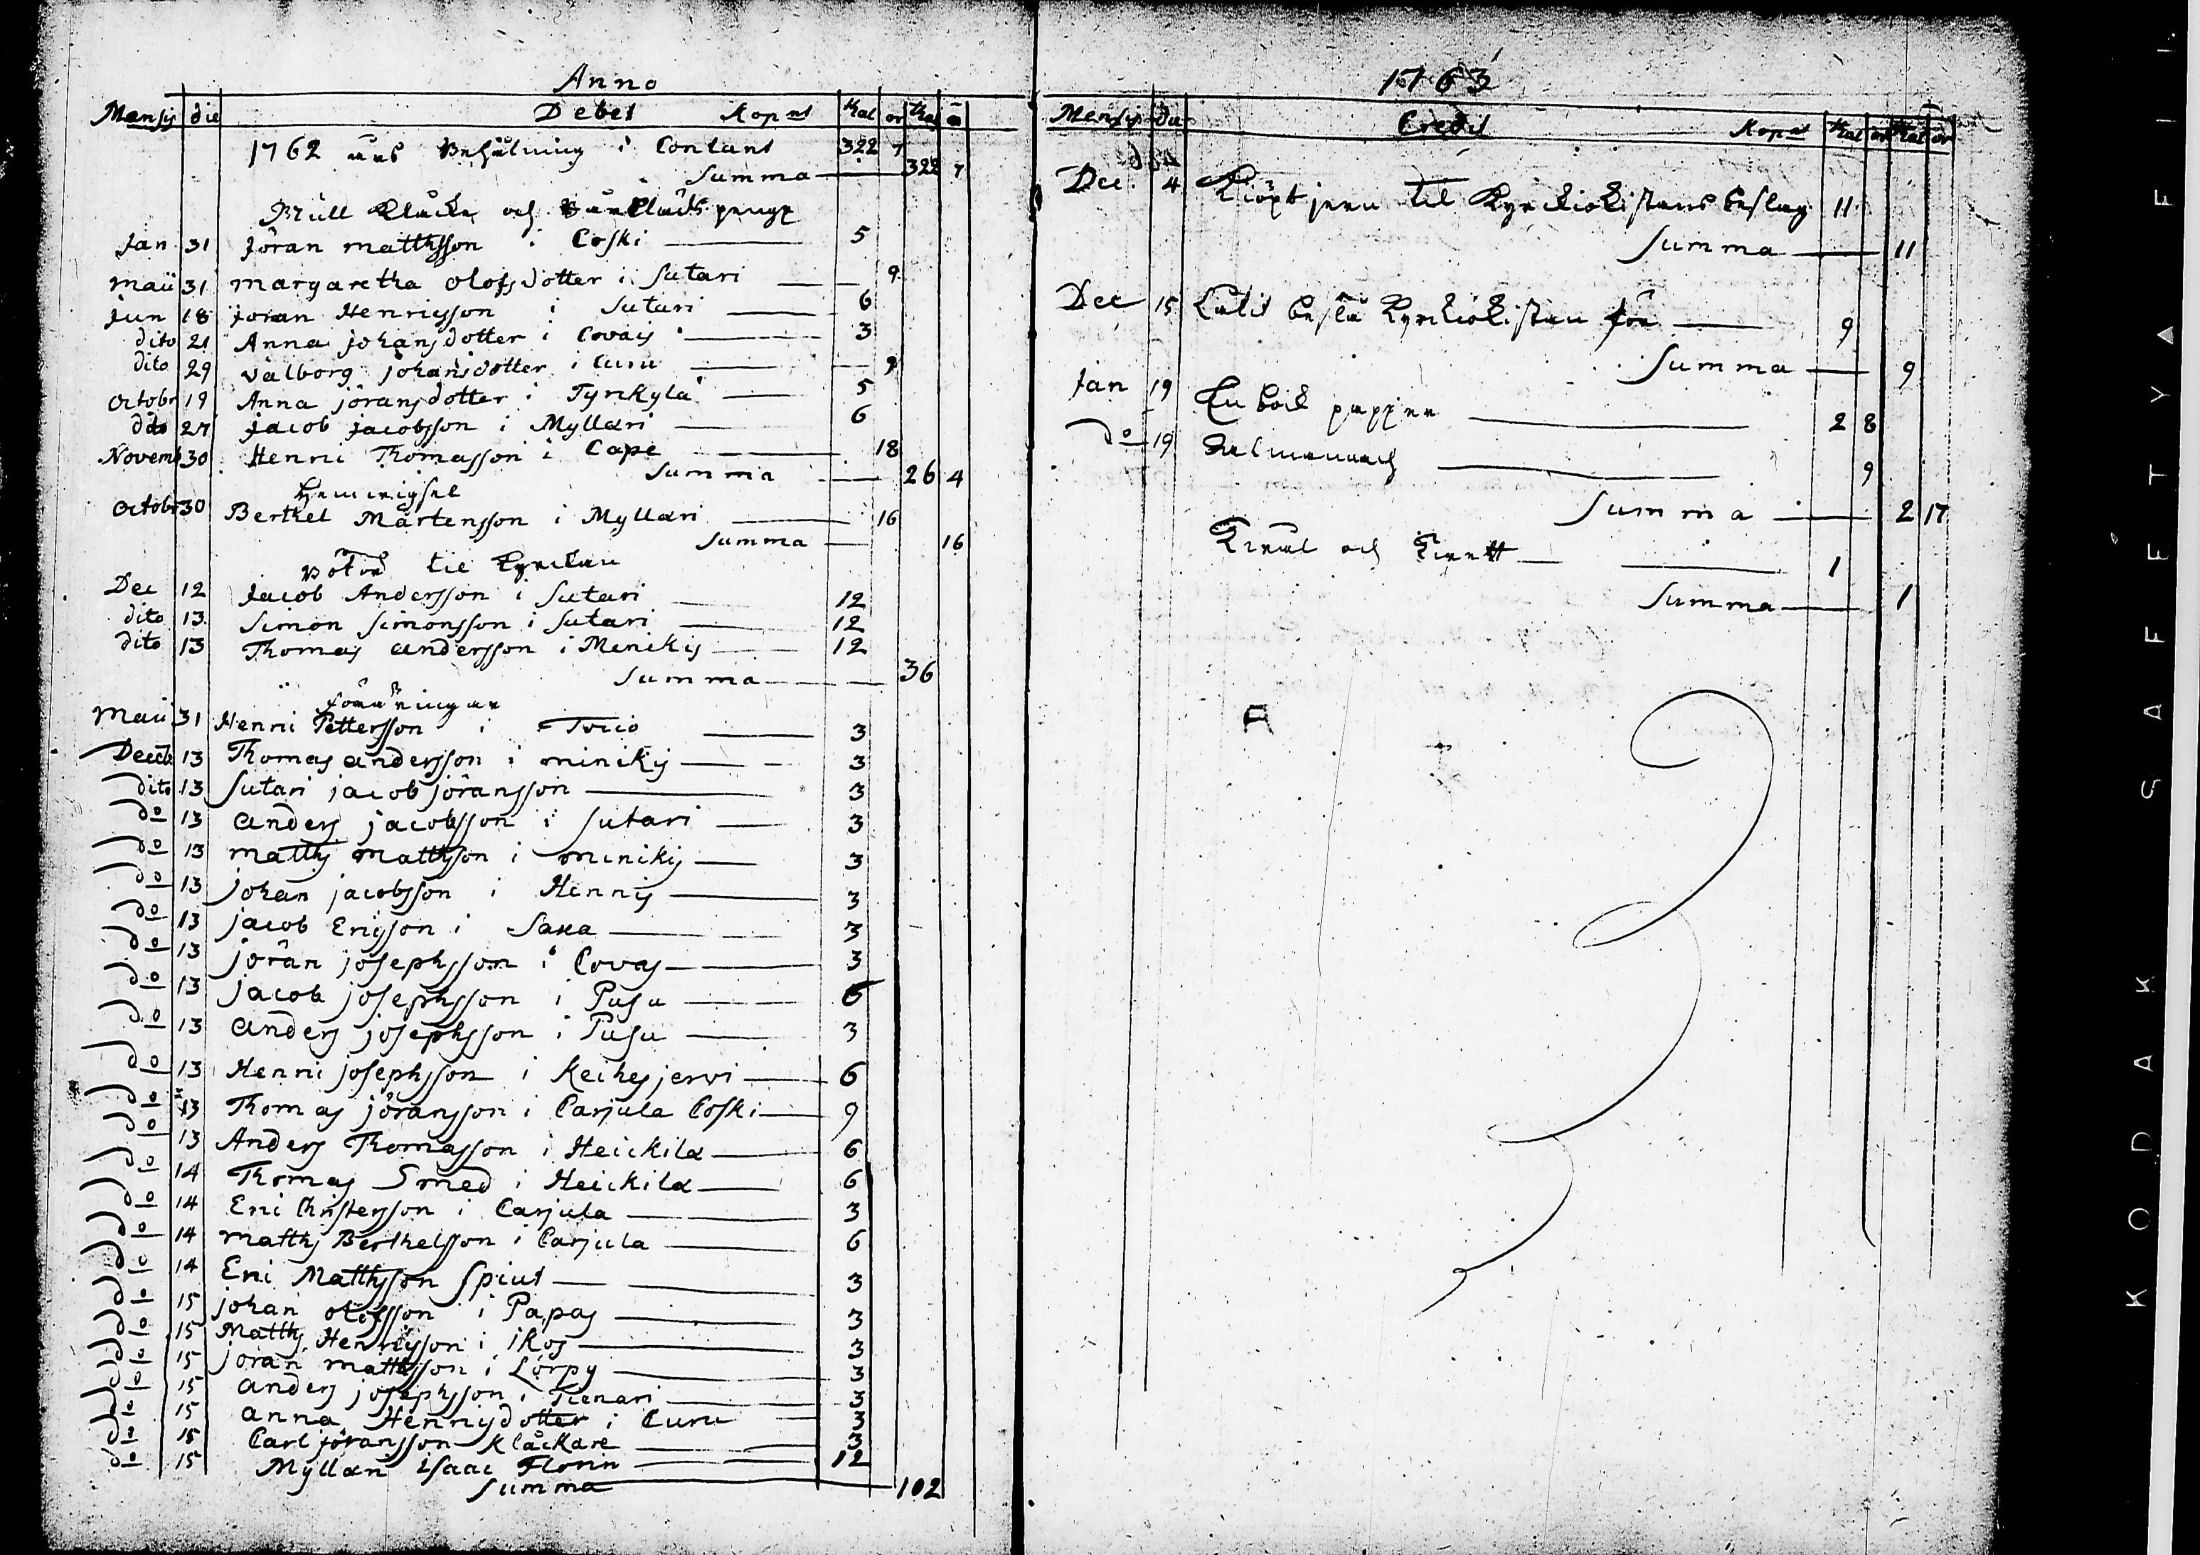 Anno
Mensis die Debet Kop mt Kal ör Kal ö
1762 års Behålning i Contant 322 7
Summa 322 7
Mull Klåcke och Bårklädes penge
Jan 31 Jöran matthsson i Coski 5
Maii 31 margaretha olofsdotter i Sutari 9
Jun 18 Jöran Henricsson i Sutari 6
dito 21 Anna johansdotter i Covais 3
dito 29 Valborg johansdotter i Curu 9
Octobr 19 Anna jöransdotter i Tyrkylä 5
dito 27 Jacob Jacobsson i Myllari 6
Novemb 30 Henric Thomasson i Cape 18
Summa 26 4
Octobr 30 Berthel Mårtensson i Myllari 16
Summa 16
Böter til Kyrckan
Dec 12 Jacob Andersson i Sutari 12
dito 13 Simon Simonsson i Sutari 12
dito 13 Thomas andersson i Menikis 12
Summa 36
Föräringar
Maii 31 Henric Pettersson i 3
Deccb 13 Thomas andersson i minikis 3
dito 13 Sutari jacob jöransson 3
do 13 anders jacobsson i Sutari 3
do 13 matths matthsson i minikis 3
do 13 johan jacobsson i Hennis 3
do 13 jacob Ericsson i Saxa 3
do 13 jöran josephsson i Covas 3
do 13 jacob josephsson i Pusu 6
do 13 anders josephsson i Pusu 3
do 13 Henric josephsson i Keikesjervi 6
do 13 Thomas jöransson i Carjula Coski 9
do 13 Anders Thomasson i Heickila 6
do 14 Thomas Smed i Heickila 6
do 14 Eric Christersson i Carjula 3
do 14 matths Berthelsson i Carjula 6
do 14 Eric Matthsson Spiut 3
do 15 johan olofsson i Papas 3
do 15 Matths Henricsson i ikos 3
do 15 joran matthsson i Lörpy 3
do 15 anders josephsson i Tienari 3
do 15 anna Henricsdotter i Curu 3
do 15 Carl jöransson klåckare 3
do 15 Myllari isaac Florin 12
Summa 102
1763
Mensis die Credit Kop mt Kal ör Kal ör
Dec 4 Kiöpt jern til Kyrckiokistans beslag 11
Summa 11
Dec 15 Låtit beslå Kyrckiokistan för 9
Summa 9
Jan 19 En bok papper 2 8
do 19 Almanach 9
Summa 2 17
1
Summa 1
KODAK SAFETY FI